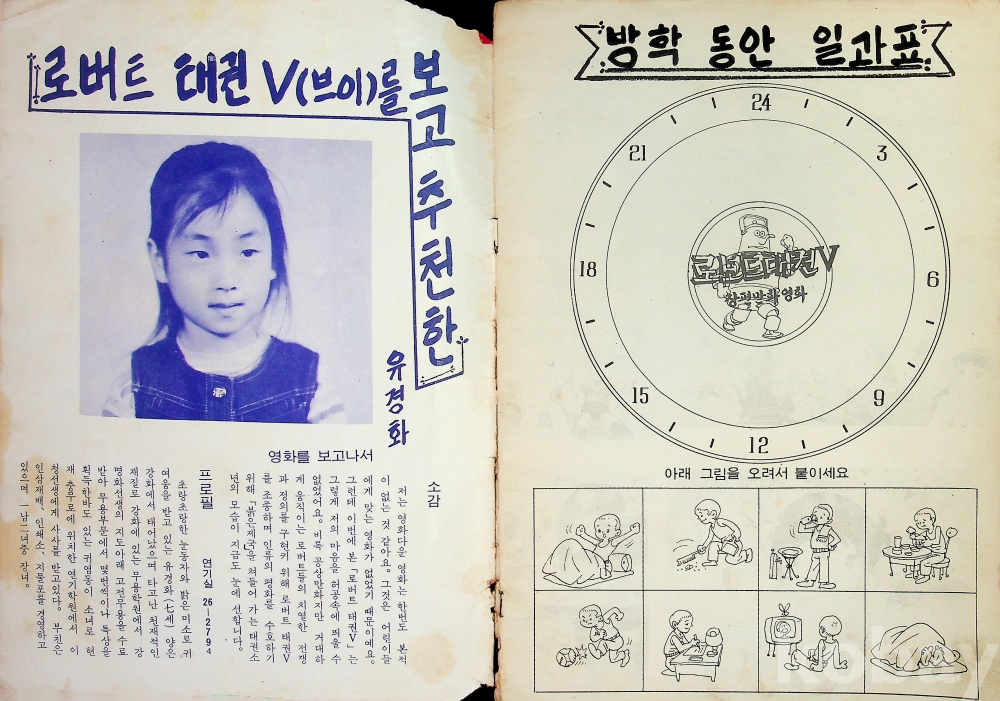 로버트 태권 V(브이)를
보고 추천한
유경화
영화를 보고나서
소감
저는 영화다운 영화는 한번도 본적
이 없는 것 같아요. 그것은 어린이들
에게 맞는 영화가 없었기 때문이예요.
그런데 이번에 본 「로버트 태권V」는
그렇게 저의 마음을 허공속에 띄울 수
없었어요. 비록 공상만화지만 거대하
게 움직이는 로버트들의 치열한 전쟁
과 정의를 구현키 위해 로버트 태권V
를 조종하며 인류의 평화를 수호하기
위해 「붉은제국」을 쳐들어 가는 태권소
년의 모습이 지금도 눈에 선합니다.
프로필 연기실 26-2794
초랑초랑한 눈동자와 밝은 미소로 귀
여움을 받고 있는 유경화(七세) 양은
강화에서 태어났으며 타고난 천재적인
재질로 강화에 있는 무용학원에서 강
명화선생의 지도아래 고전무용을 수료
받아 무용부문에서 몇번씩이나 특상을
획득한바도 있는 귀염둥이 소녀로 현
재 충무로에 위치한 연기학원에서 이
청선생에게 사사를 받고있다. 부친은
인삼재배, 인쇄소, 지물포를 경영하고
있으며 一남二녀중 장녀.
방학 동안 일과표
24
3
6
9
12
15
18
21
로보트태권V
장편만화영화
아래 그림을 오려서 붙이세요
kobay